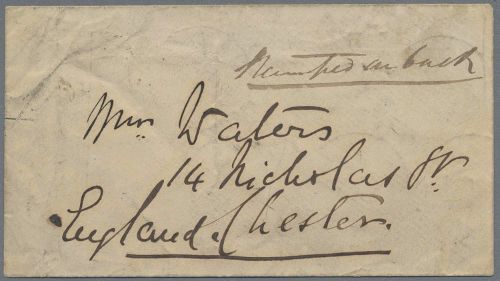 Stamped on back
Mrs. Waters
14 Nicholas St.
England. Chester.